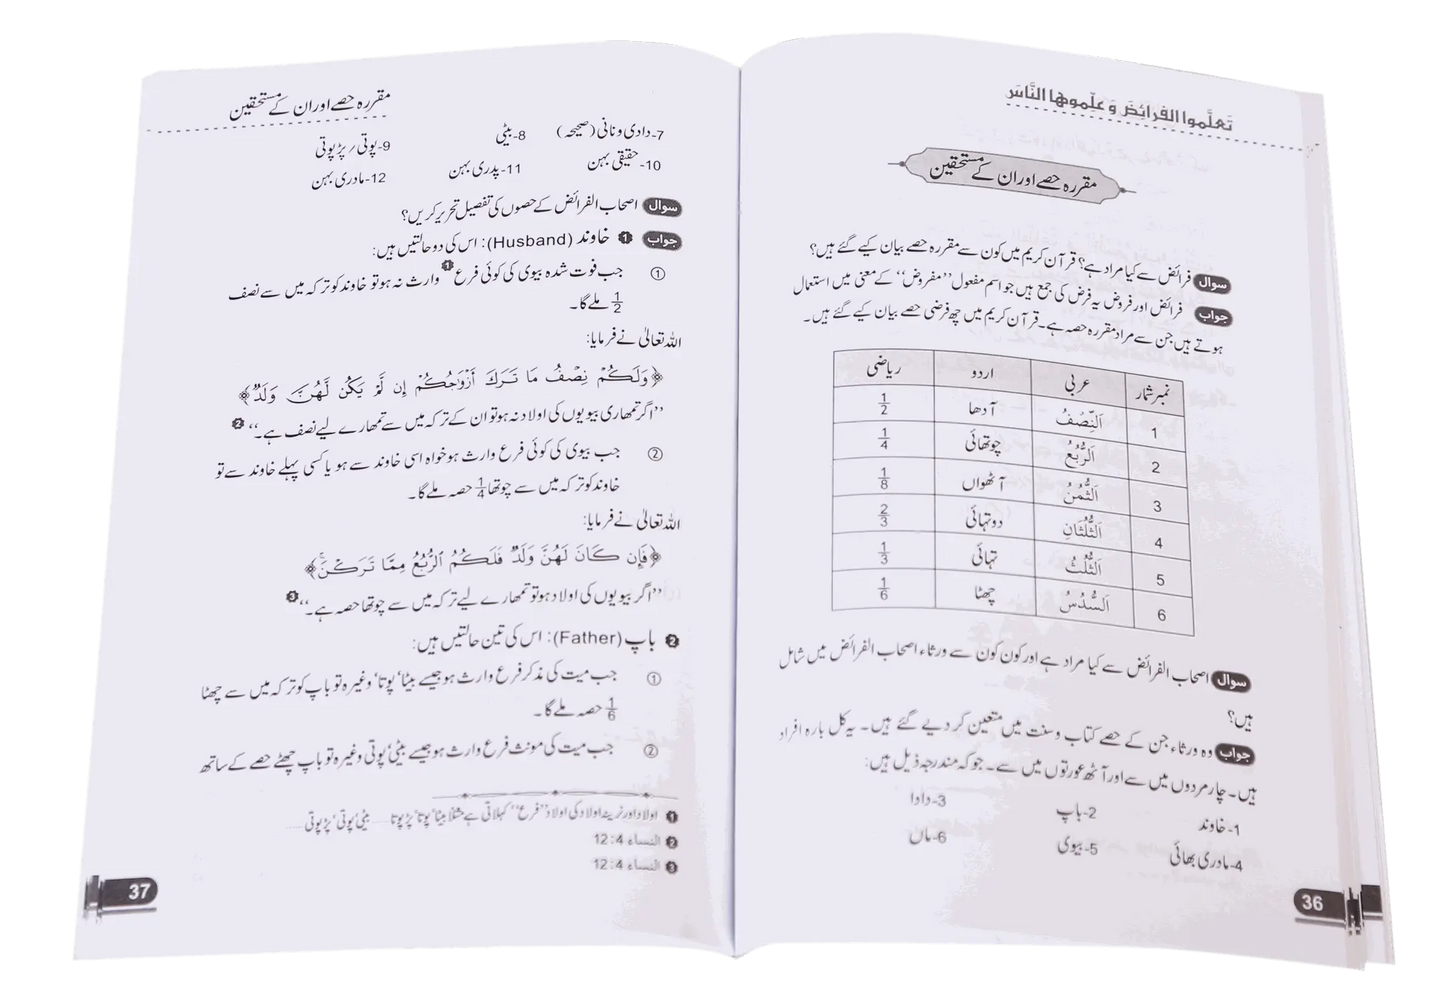 تَعلَّموا الفَرائِضَ وَعلِّموها النَّاسَ
مقررہ حصے اور ان کے مستحقین
سوال فرائض سے کیا مراد ہے؟ قرآن کریم میں کون سے مقررہ حصے بیان کیے گئے ہیں؟
جواب فرائض اور فروض یہ فرض کی جمع ہیں جو اسم مفعول ”مفروض“ کے معنی میں استعمال
ہوتے ہیں جن سے مراد مقررہ حصہ ہے۔ قرآن کریم میں چھ فرضی حصے بیان کیے گئے ہیں۔
نمبر شمار عربی اردو ریاضی
1 اَلنِّصْفُ آدھا 1/2
2 اَلرُّبُعُ چوتھائی 1/4
3 اَلثُّمُنُ آٹھواں 1/8
4 اَلثُّلُثَانِ دو تہائی 2/3
5 اَلثُّلُثُ تہائی 1/3
6 اَلسُّدُسُ چھٹا 1/6
سوال اصحاب الفرائض سے کیا مراد ہے اور کون کون سے ورثاء اصحاب الفرائض میں شامل
ہیں؟
جواب وہ ورثاء جن کے حصے کتاب و سنت میں متعین کر دیے گئے ہیں۔ یہ کل بارہ افراد
ہیں۔ چار مردوں میں سے اور آٹھ عورتوں میں سے۔ جو کہ مندرجہ ذیل ہیں:
1- خاوند 2- باپ 3- دادا
4- مادری بھائی 5- بیوی 6- ماں
36
مقررہ حصے اور ان کے مستحقین
7- دادی و نانی (صحیحہ) 8- بیٹی 9- پوتی / پڑپوتی
10- حقیقی بہن 11- پدری بہن 12- مادری بہن
سوال اصحاب الفرائض کے حصوں کی تفصیل تحریر کریں؟
جواب 1 خاوند (Husband): اس کی دو حالتیں ہیں:
① جب فوت شدہ بیوی کی کوئی فرع 1 وارث نہ ہو تو خاوند کو ترکہ میں سے نصف
1/2 ملے گا۔
اللہ تعالیٰ نے فرمایا:
﴿وَلَكُمْ نِصْفُ مَا تَرَكَ أَزْوَاجُكُمْ إِن لَّمْ يَكُن لَّهُنَّ وَلَدٌ﴾
”اگر تمھاری بیویوں کی اولاد نہ ہو تو ان کے ترکہ میں سے تمھارے لیے نصف ہے۔“ 2
② جب بیوی کی کوئی فرع وارث ہو خواہ اسی خاوند سے ہو یا کسی پہلے خاوند سے تو
خاوند کو ترکہ میں سے چوتھا 1/4 حصہ ملے گا۔
اللہ تعالیٰ نے فرمایا:
﴿فَإِن كَانَ لَهُنَّ وَلَدٌ فَلَكُمُ الرُّبُعُ مِمَّا تَرَكْنَ﴾
”اگر بیویوں کی اولاد ہو تو تمھارے لیے ترکہ میں سے چوتھا حصہ ہے۔“ 3
2 باپ (Father): اس کی تین حالتیں ہیں:
① جب میت کی مذکر فرع وارث ہو جیسے بیٹا، پوتا، وغیرہ تو باپ کو ترکہ میں سے چھٹا
1/6 حصہ ملے گا۔
② جب میت کی مونث فرع وارث ہو جیسے بیٹی، پوتی وغیرہ تو باپ چھٹے حصے کے ساتھ
1 اولاد اور نرینہ اولاد کی اولاد ”فرع“ کہلاتی ہے مثلاً بیٹا، پوتا، پڑپوتا...... بیٹی، پوتی، پڑپوتی......
2 النساء 12:4
3 النساء 12:4
37